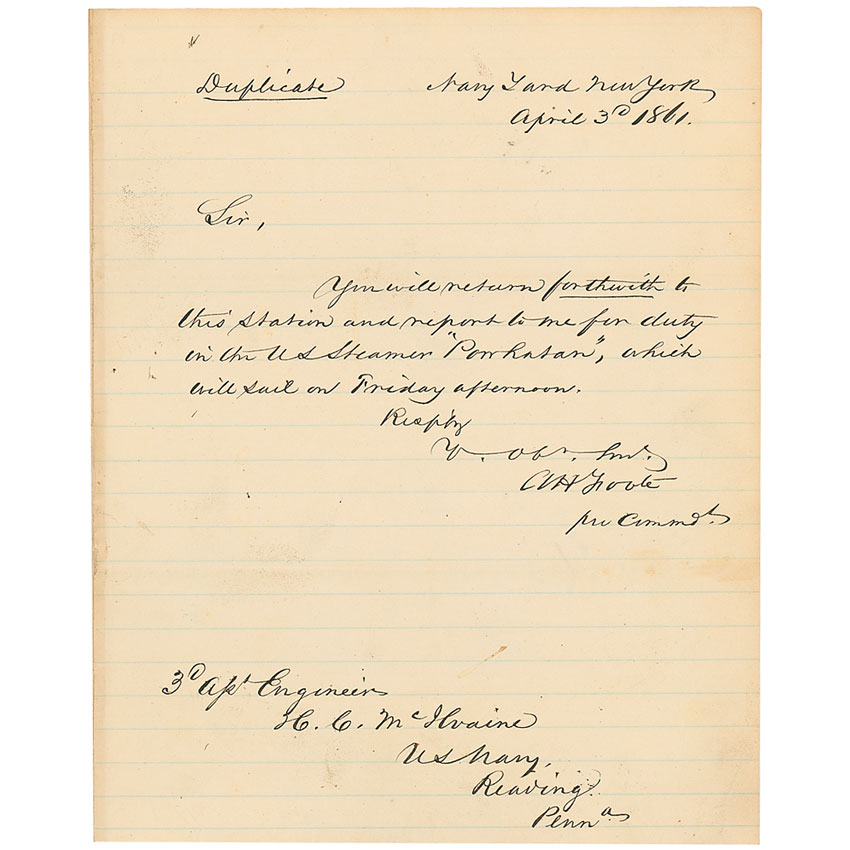 Duplicate Navy Yard New York
April 3D 1861.
Sir,
You will return forthwith to
this Station and report to me for duty
in the US Steamer "Powhatan", which
will sail on Friday afternoon.
Respy
Yr. Obt. Servt.
AH Foote
pro Commdt.
3D Asst Engineer
H. C. McIlvaine
US Navy,
Reading.
Penna